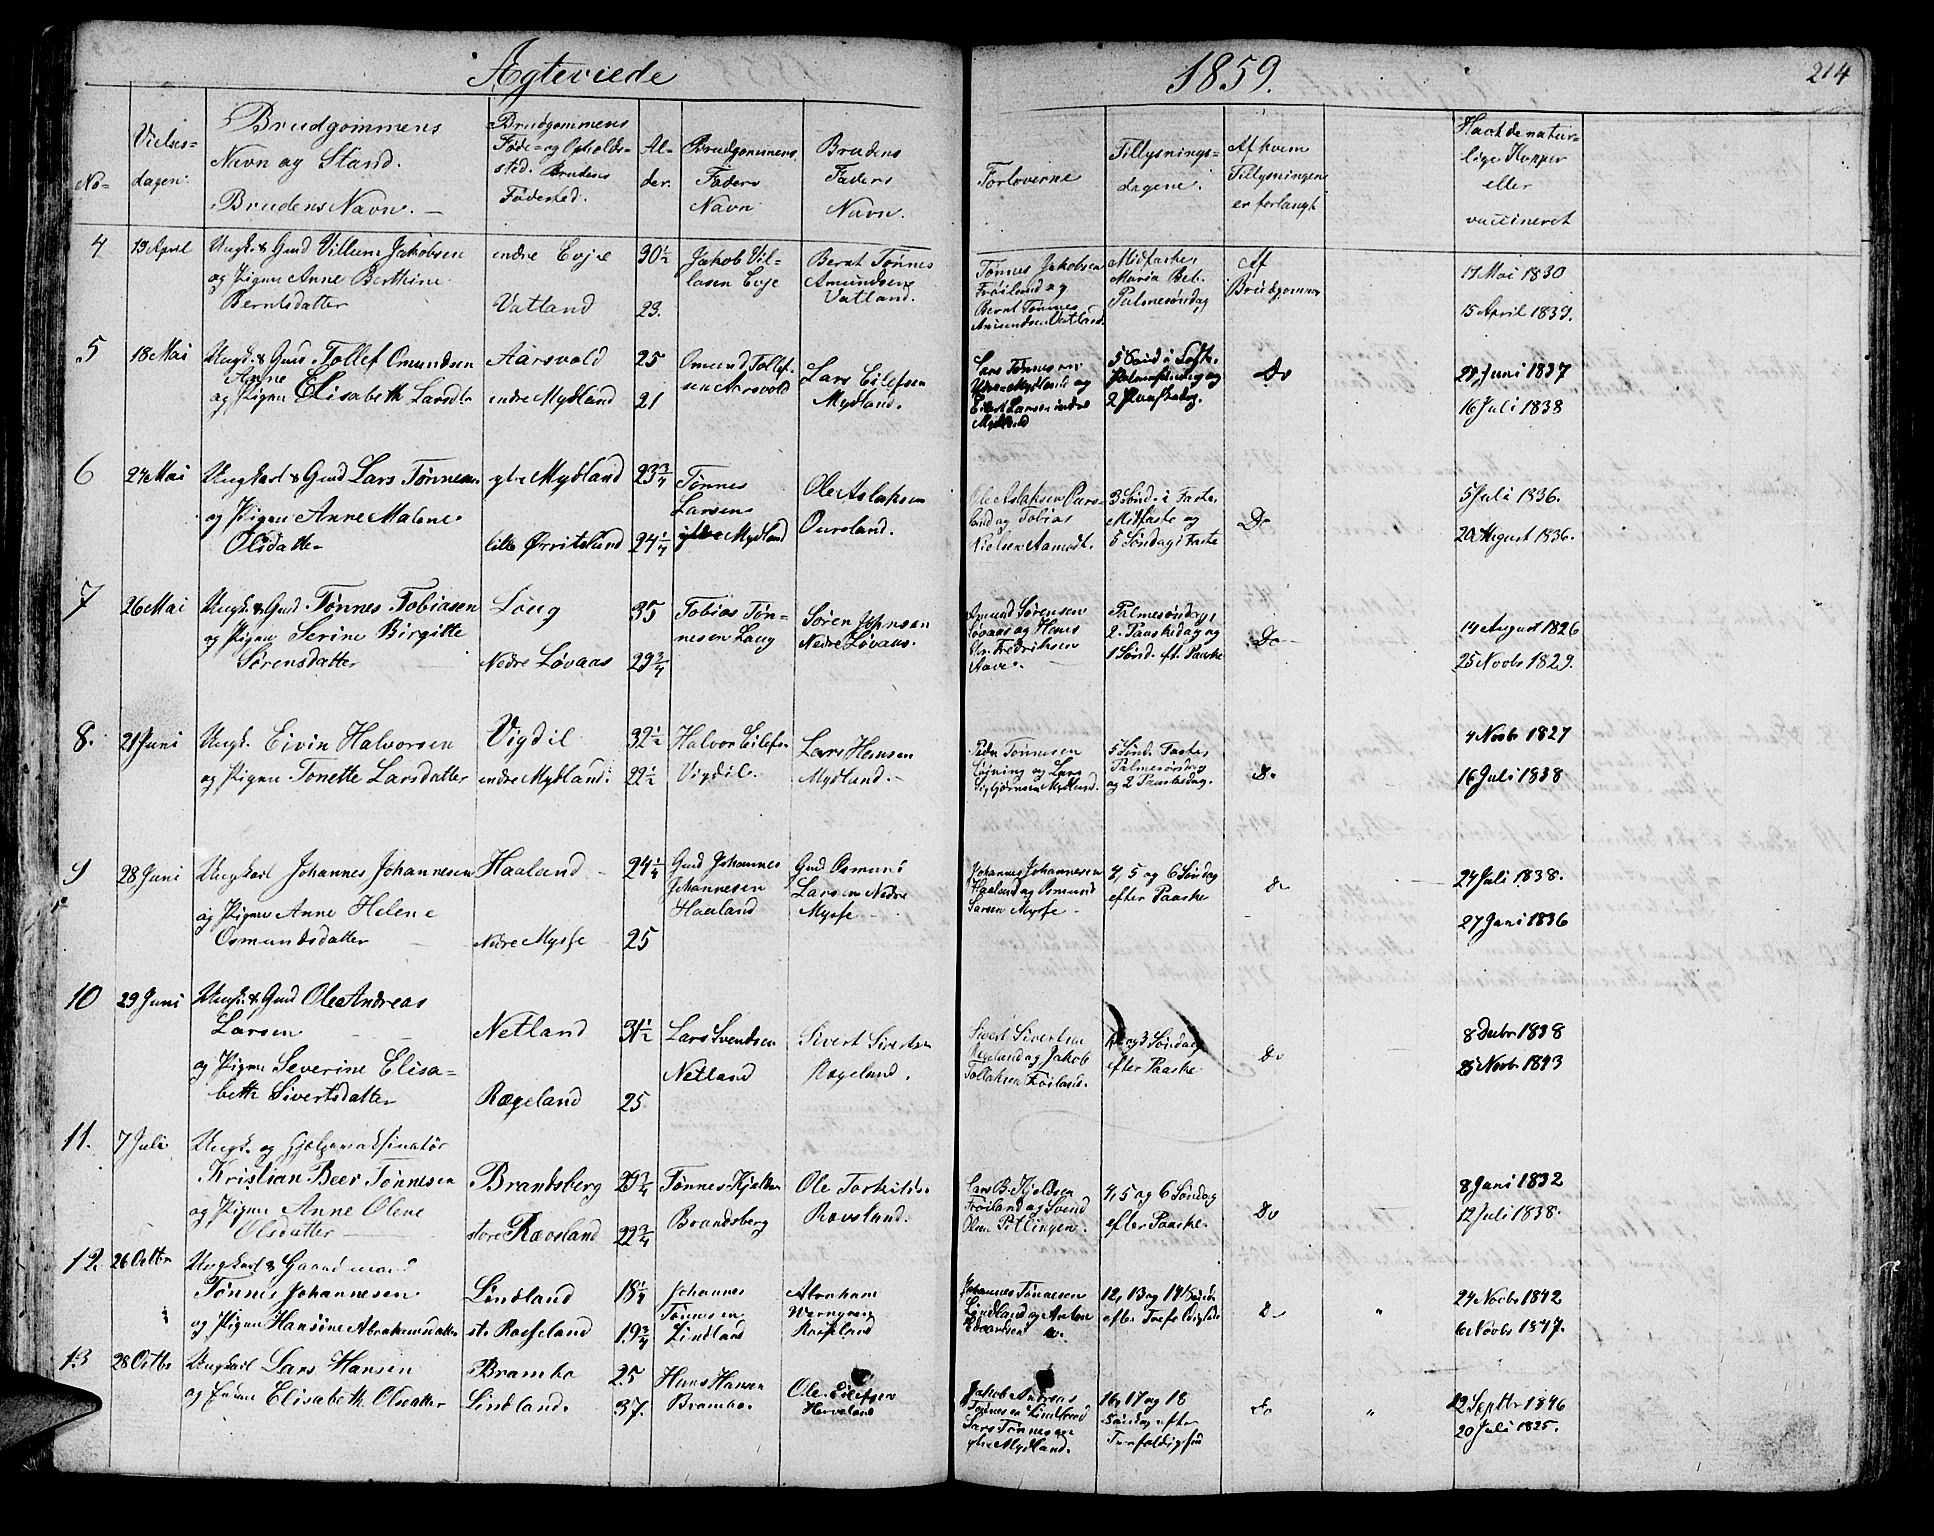 Ægteviede 1859. 214
No-
Vielses-
dagen.
Brudgommens
Navn og Stand.
Brudens Navn. —
Brudgommens
Føde- og Opholds-
sted. Brudens
Fødested.
Al-
der.
Brudgommens
Faders
Navn
Brudens
Faders
Navn.
Forloverne
Tillysnings-
dagene.
Af hvem
Tillysningene
er forlangt
Havt de natur-
lige Kopper
eller
vaccineret
4 13 April Ungk. & Gmd Villum Jakobsen
og Pigen Anne Berthine
Berntsdatter
indre Evje
Vatland
30½
23.
Jakob Vil-
lasen Evje
Bernt Tønnes
Amundsen
Vatland.
Tønnes Jakobsen
Frøiland og
Bernt Tønnes
Amundsen Vatland.
Midfaste,
Maria Beb.
Palmesøndag
Af
Brudgommen
17 Mai 1830
15 April 1839.
5 18 Mai Ungk. & Gmd. Tollef Omundsen
Anne
og Pigen Elisabeth Larsdtr
Aarsvold
indre Mydland
25
21
Omund Tollef-
sen Aarsvold
Lars Eilefsen
Mydland.
Lars Tønnesen
Mydland og
Eilert Larsen indre
Mydland
5 Sønd. i Faste,
Palmesøndag og
2 Paaskedag.
Do
28 Juni 1837
16 Juli 1838
6 24 Mai Ungkarl & Gmd Lars Tønnesen
og Pigen Anne Malene
Olsdatter
ytre Mydland
lille Ørritsland
23¾
24¼
Tønnes
Larsen
ytre Mydland
Ole Aslaksen
Oursland.
Ole Aslaksen Ours-
land og Tobias
Nielsen Aamodt.
3 Sønd. i Faste,
Midfaste og
5 Søndag i Faste
Do
5 Juli 1836.
20 August 1836.
7 26 Mai Ungk. & Gmd Tønnes Tobiasen
og Pigen Serine Birgitte
Sørensdatter
Loug
Nedre Løvaas
35
29¾
Tobias Tøn-
nesen Loug
Søren Johnsen
Nedre Løvaas.
Amund Sørensen
Løvaas og Hans
Fredriksen
Palmesøndag,
2. Paaskedag og
1 Sønd. eft. Paaske
Do
14 August 1826
25 Novbr 1829.
8. 21 Juni Ungk. Eivin Halvorsen
og Pigen Tonette Larsdatter
Vigdil
indre Mydland.
32½
22½
Halvor Eilefs.
Vigdil.
Lars Hansen
Mydland.
Peder Tønnesen
og Lars
Sigbjørnsen Mydland.
5 Sønd. Faste,
Palmesøndag
og 2 Paaskedag.
Do
4 Novbr 1827
16 Juli 1838
9 28 Juni Ungkarl Johannes Johannesen
og Pigen Anne Helene
Osmundsdatter
Haaland
Nedre Mysse
24¼
25
Gmd Johannes
Johannesen
Haaland
Gmd Osmund
Larsen Nedre
Mysse
Johannes Johannesen
Haaland og Osmund
Larsen Mysse
4, 5 og 6 Søndag
efter Paaske
Do
24 Juli 1838.
27 Juni 1836
10 29 Juni Ungk. & Gmd Ole Andreas
Larsen
og Pigen Severine Elisa-
beth Sivertsdatter
Netland
Rægeland
31½
25
Lars Svendsen
Netland
Sivert Sivertsen
Rægeland.
Sivert Sivertsen
Rægeland og Jakob
Tollaksen Frøiland.
og 3 Søndag
efter Paaske
Do
8 Decbr 1838
Novbr 1843
11. 7 Juli Ungk. og Hjælpevaksinatør
Kristian Beer Tønnesen
og Pigen Anne Olene
Olsdatter
Brandsberg
store Rævsland
29¾
22¾
Tønnes Kjeldsen
Brandsberg
Ole Torkilds.
Rævsland.
Lars B. Kjeldsen
Frøiland og Svend
Olsen Pitlingen.
4, 5 og 6 Søndag
efter Paaske.
Do
8 Juni 1832
12 Juli 1838.
12. 26 Octbr Ungkarl & Gaardmand
Tønnes Johannesen
og Pigen Hansine Abrahamsdatter
Lindland
st. Rosseland
18¼
19¾
Johannes
Tønnesen
Lindland
Abraham
Rosseland
Johannes Tønnesen
Lindland og Anton
Edvardsen
12, 13 og 14 Sønd.
efter Trefoldighed
Do
"
24 Novbr 1842
6 Novbr 1847.
13 28 Octbr Ungkarl Lars Hansen
og Enken Elisabeth Olsdatter
Brambo
Lindland.
25
37.
Hans Hansen
Brambo.
Ole Eilefsen
Herveland
Jakob Andreas
Tønnesen Lindland
Lars Tønnesen
ytre Mydland.
16, 17 og 18
Søndag efter
Trefoldighed
Do
"
12 Septbr 1846
20 Juli 1825.